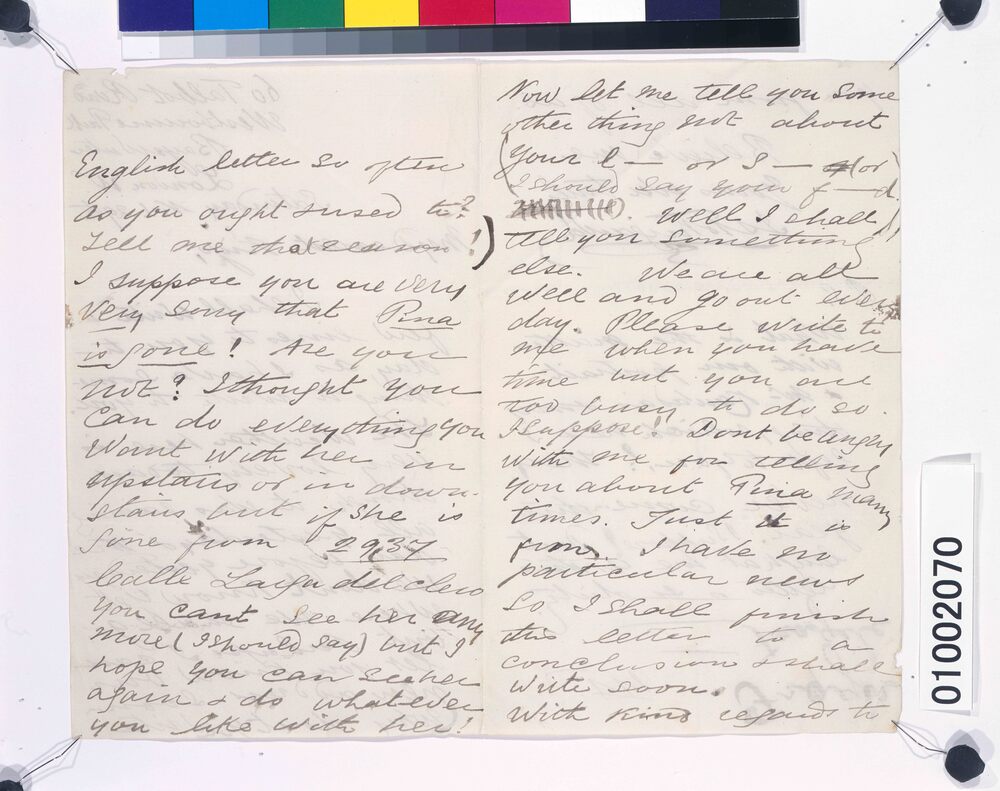 English letter so often
as you ought & used to?
Tell me the reason!)
I suppose you are very
very sorry that Pina
is gone! Are you
not? I thought you
can do everything you
want with her in
upstairs or in down-
stairs but if she is
gone from 2937
Calle Larga del clero
you cant see her any
more (I should say) but I
hope you can see her
again & do whatever
you like with her!
Now let me tell you some
other thing not about
(your l— or S— (or
I should say your f—d.
Well I shall
tell you something
else. We are all
well and go out every
day. Please write to
me when you have
time but you are
too busy to do so.
I suppose! Dont be angry
with me for telling
you about Pina many
times. Just it is
I have no
particular news
so I shall finish
this letter to a
conclusion & shall
write soon.
With kind regards to
01002070